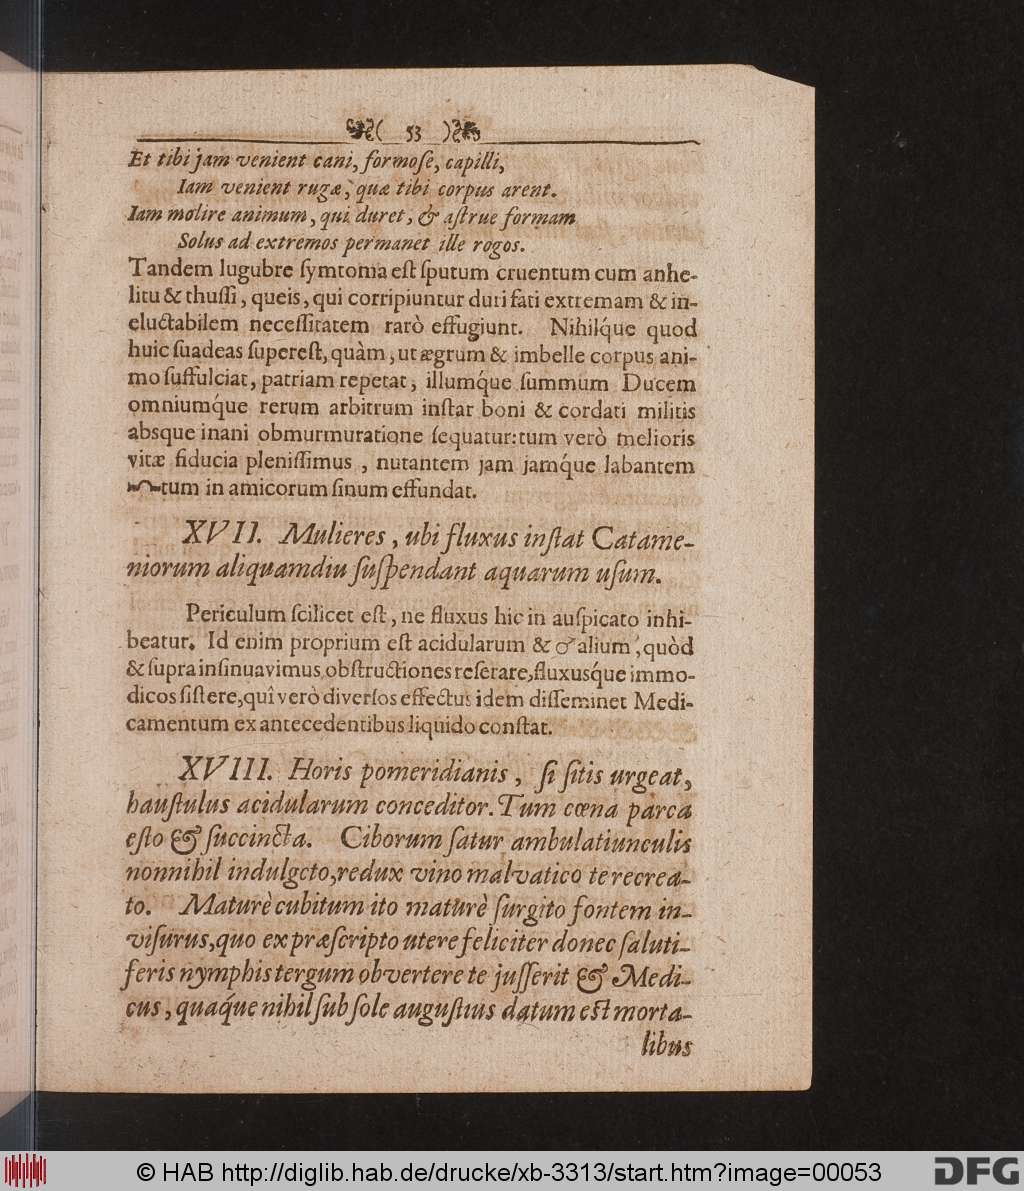 ( 53 )
Et tibi jam venient cani, formoſe, capilli,
Iam venient rugæ, quæ tibi corpus arent.
Iam molire animum, qui duret, & aſtrue formam
Solus ad extremos permanet ille rogos.
Tandem lugubre ſymtoma eſt ſputum cruentum cum anhe-
litu & thuſſi, queis, qui corripiuntur duri fati extremam & in-
eluctabilem neceſſitatem rarò effugiunt. Nihilq́ue quod
huic ſuadeas ſupereſt, quàm, ut ægrum & imbelle corpus ani-
mo ſuffulciat, patriam repetat, illumq́ue ſummum Ducem
omniumq́ue rerum arbitrum inſtar boni & cordati militis
absque inani obmurmuratione ſequatur: tum verò melioris
vitæ fiducia pleniſſimus, nutantem jam jamq́ue labantem
tum in amicorum ſinum effundat.
XVII. Mulieres, ubi fluxus inſtat Catame-
niorum aliquamdiu ſuſpendant aquarum uſum.
Periculum ſcilicet eſt, ne fluxus hic in auſpicato inhi-
beatur. Id enim proprium eſt acidularum & ♂alium, quòd
& ſupra inſinuavimus, obſtructiones reſerare, fluxusq́ue immo-
dicos ſiſtere, quî verò diverſos effectus idem diſſeminet Medi-
camentum ex antecedentibus liquido conſtat.
XVIII. Horis pomeridianis, ſi ſitis urgeat,
hauſtulus acidularum conceditor. Tum cœna parca
eſto & ſuccincta. Ciborum ſatur ambulatiunculis
nonnihil indulgeto, redux vino malvatico te recrea-
to. Maturè cubitum ito maturè ſurgito fontem in-
viſurus, quo ex præſcripto utere feliciter donec ſaluti-
feris nymphis tergum obvertere te juſſerit & Medi-
cus, quaq́ue nihil ſub ſole auguſtius datum eſt morta-
libus
© HAB http://diglib.hab.de/drucke/xb-3313/start.htm?image=00053
DFG